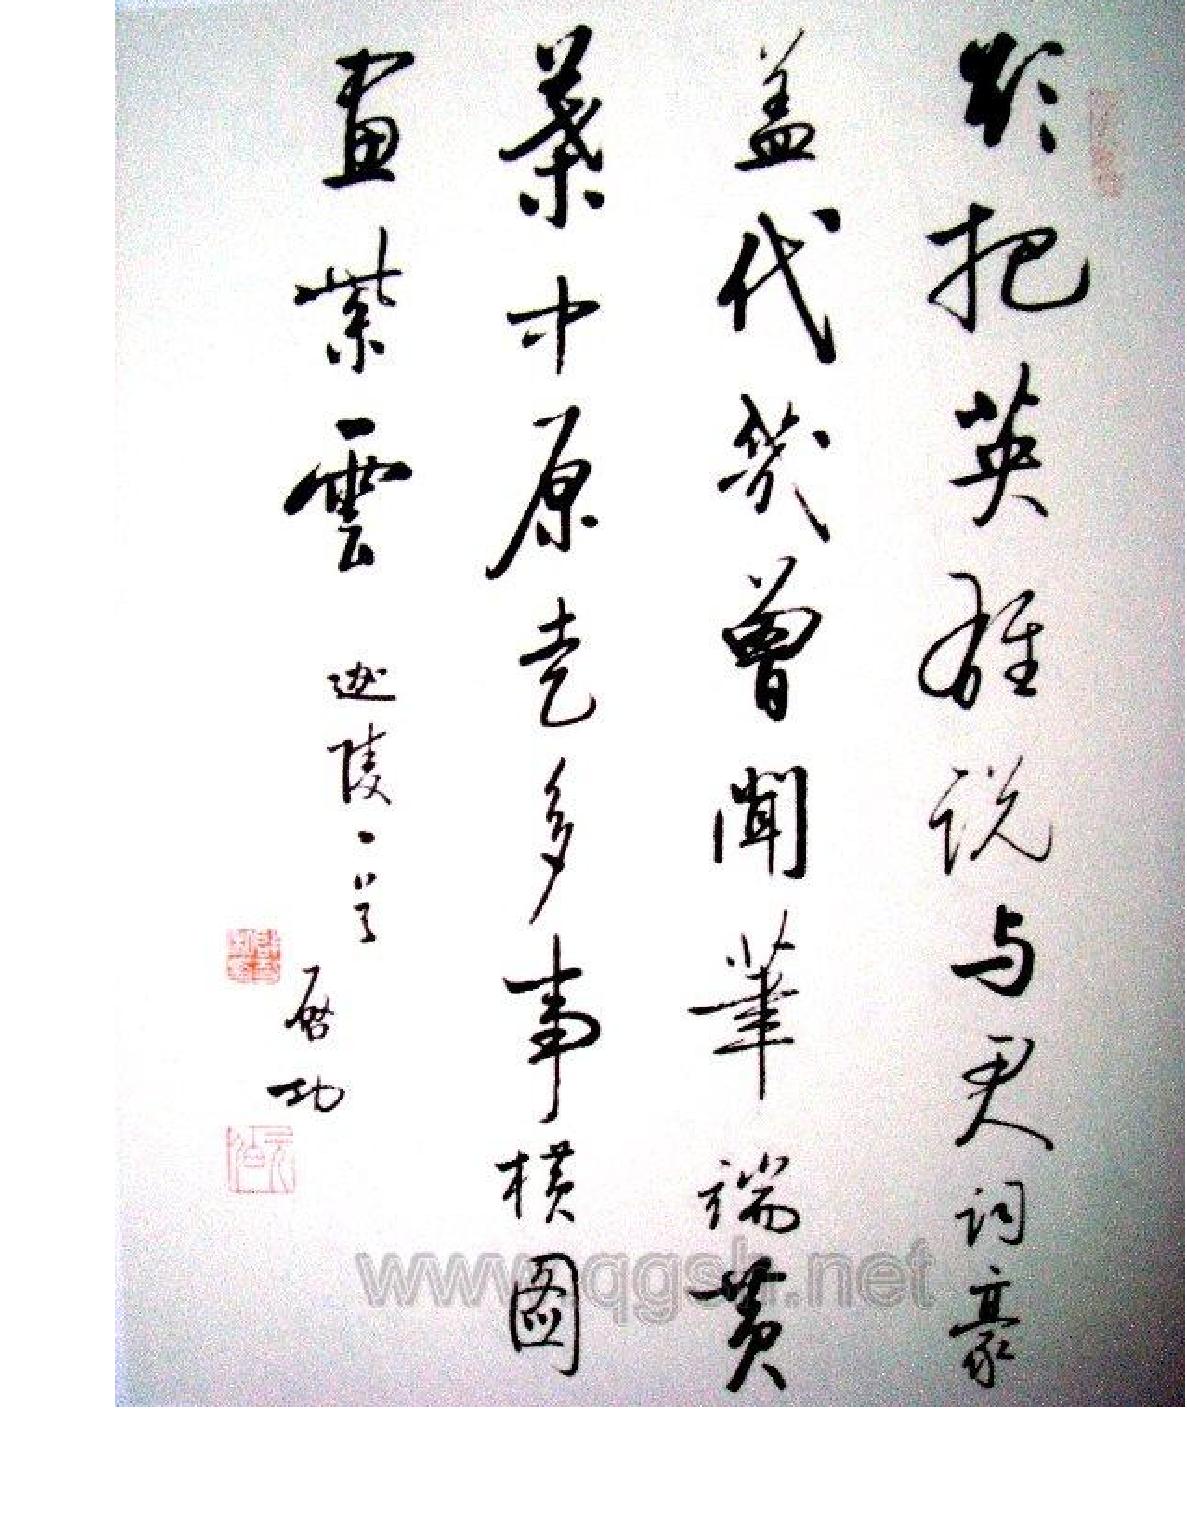 欲把英雄说与君词豪
盖代几曾闻筆端黄
葉中原走多事横图
画紫雲 迦陵一首
启功
www.qgsh.net